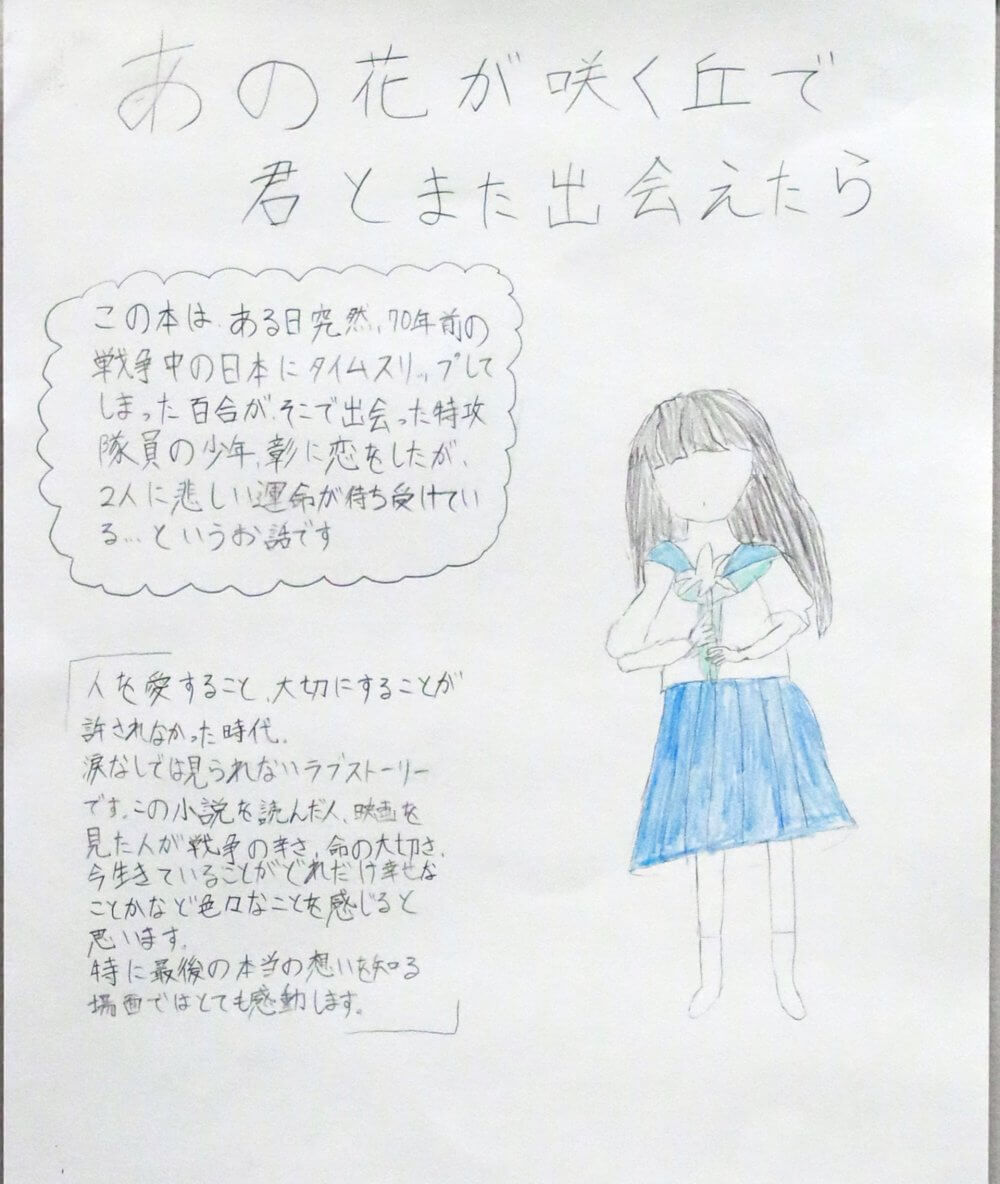 あの花が咲く丘で
君とまた出会えたら
この本は、ある日突然、70年前の
戦争中の日本にタイムスリップして
しまった百合が、そこで出会った特攻
隊員の少年、彰に恋をしたが、
2人に悲しい運命が待ち受けてい
る…というお話です
「人を愛すること、大切にすることが
許されなかった時代。
涙なしでは見られないラブストーリー
です。この小説を読んだ人、映画を
見た人が戦争の辛さ、命の大切さ、
今生きていることがどれだけ幸せな
ことかなど色々なことを感じると
思います。
特に最後の本当の想いを知る
場面ではとても感動します。」